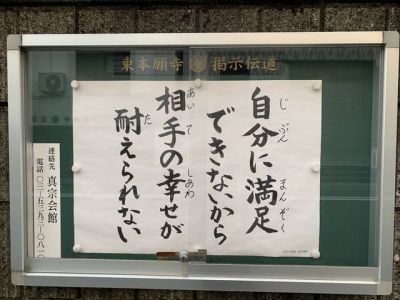 東本願寺 掲示伝道
自分に満足
できないから
相手の幸せが
耐えられない
じぶん
まんぞく
あいて
しあわ
た
連絡先 真宗会館